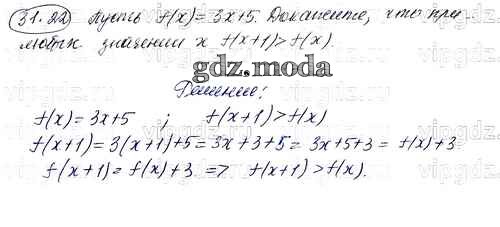 31.22 Пусть f(x) = 3x+5. Докажите, что при
любых значении x f(x+1) > f(x).
gdz.moda
Решение:
f(x) = 3x+5 ; f(x+1) > f(x)
f(x+1) = 3(x+1)+5 = 3x+3+5 = 3x+5+3 = f(x)+3
f(x+1) = f(x)+3 => f(x+1) > f(x).
vipgdz